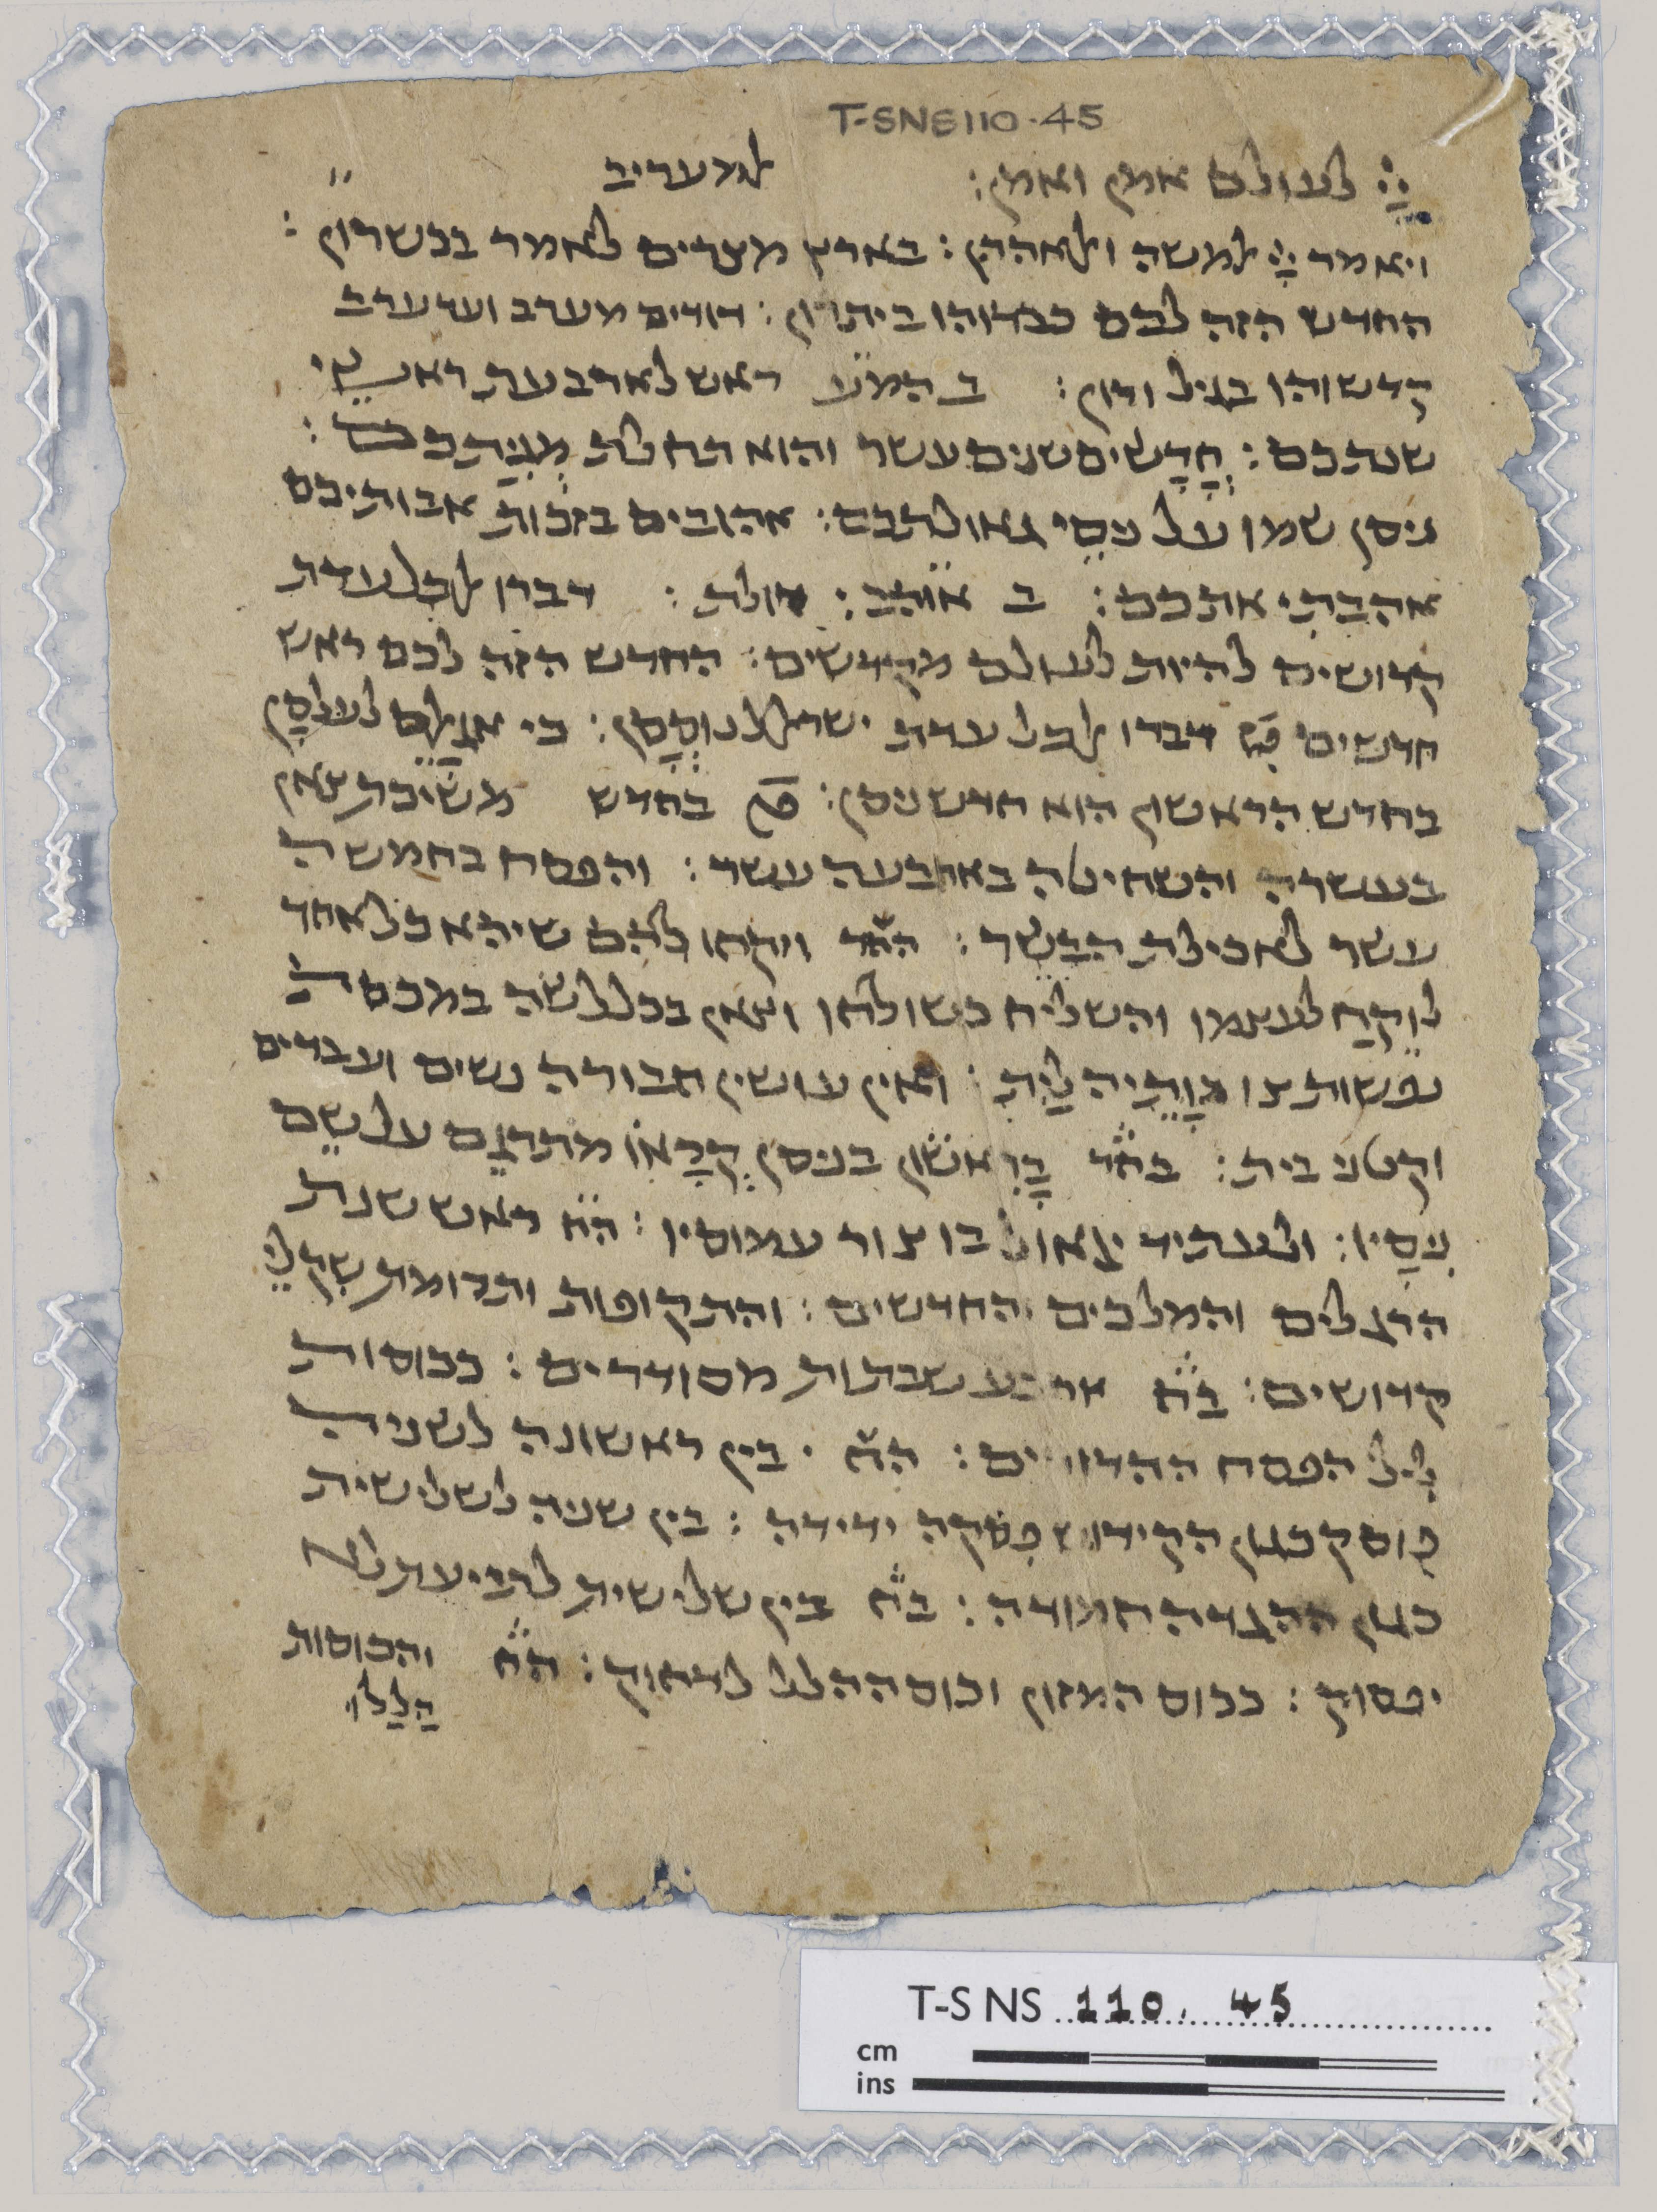 T-SNS110.45
יֹיָ לעולם אמן ואמן: אלמעריב
ויאמר יֹיָ אלמשה ואלאהרן: בארץ מצרים לאמר בכשרון:
החדש הזה לכם כבדוהו ביתרון: דודים מערב ועד ערב
קדשוהו בגיל ורון: ב המע ראש לארבעת ראשי
שנתכם: חֳדָשים שנים עשר והוא תחלת מִנְיַתכם:
ניסן שמו על ניסי גאולתכם: אהובים בזכות אבותיכם
אהבתי אתכם: ב אוהב: דברו אלכל עדת
קדושים להיות לעולם מקדשים: החדש הזה לכם ראש
חדשים דברו אלכל עדת ישראל לנוססן: כי
בחדש הראשון הוא חדש ניסן: בחדש משיכת צאן
בעשרה והשחיטה בארבעה עשר: והפסח בחמשה
עשר לאכילת הבשר: החד ויקחו להם שיהא כל אחד
לוקח לעצמו והשליח כשולחו וצאן בכלל שה במכסת
נפשות צו ואין עושין חבורה נשים ועבדים
וקטני בית: בחד בָרִאשון בניסן קְרָאוֹ מתרגם על שם
נִסָיו: ולעתיד יגאול בו צור עמוסיו: הח ראש שנת
הרגלים והמלכים החדשים: והתקופות ותרומת שקלי
קדושים: בח ארבע שבתות מסודרים: ככוסות
ליל הפסח ההדורים: הח בין ראשונה לשנית
פוסק כגון הקידוש פסקה ידידה: בין שניה לשלישית
כגון ההגדה חמודה: בח בין שלישית לרביעת לא
יפסוק: ככוס המזון וכוס ההלל לדחוק: הח והכוסות
הללו
T-S NS 110. 45
cm
ins